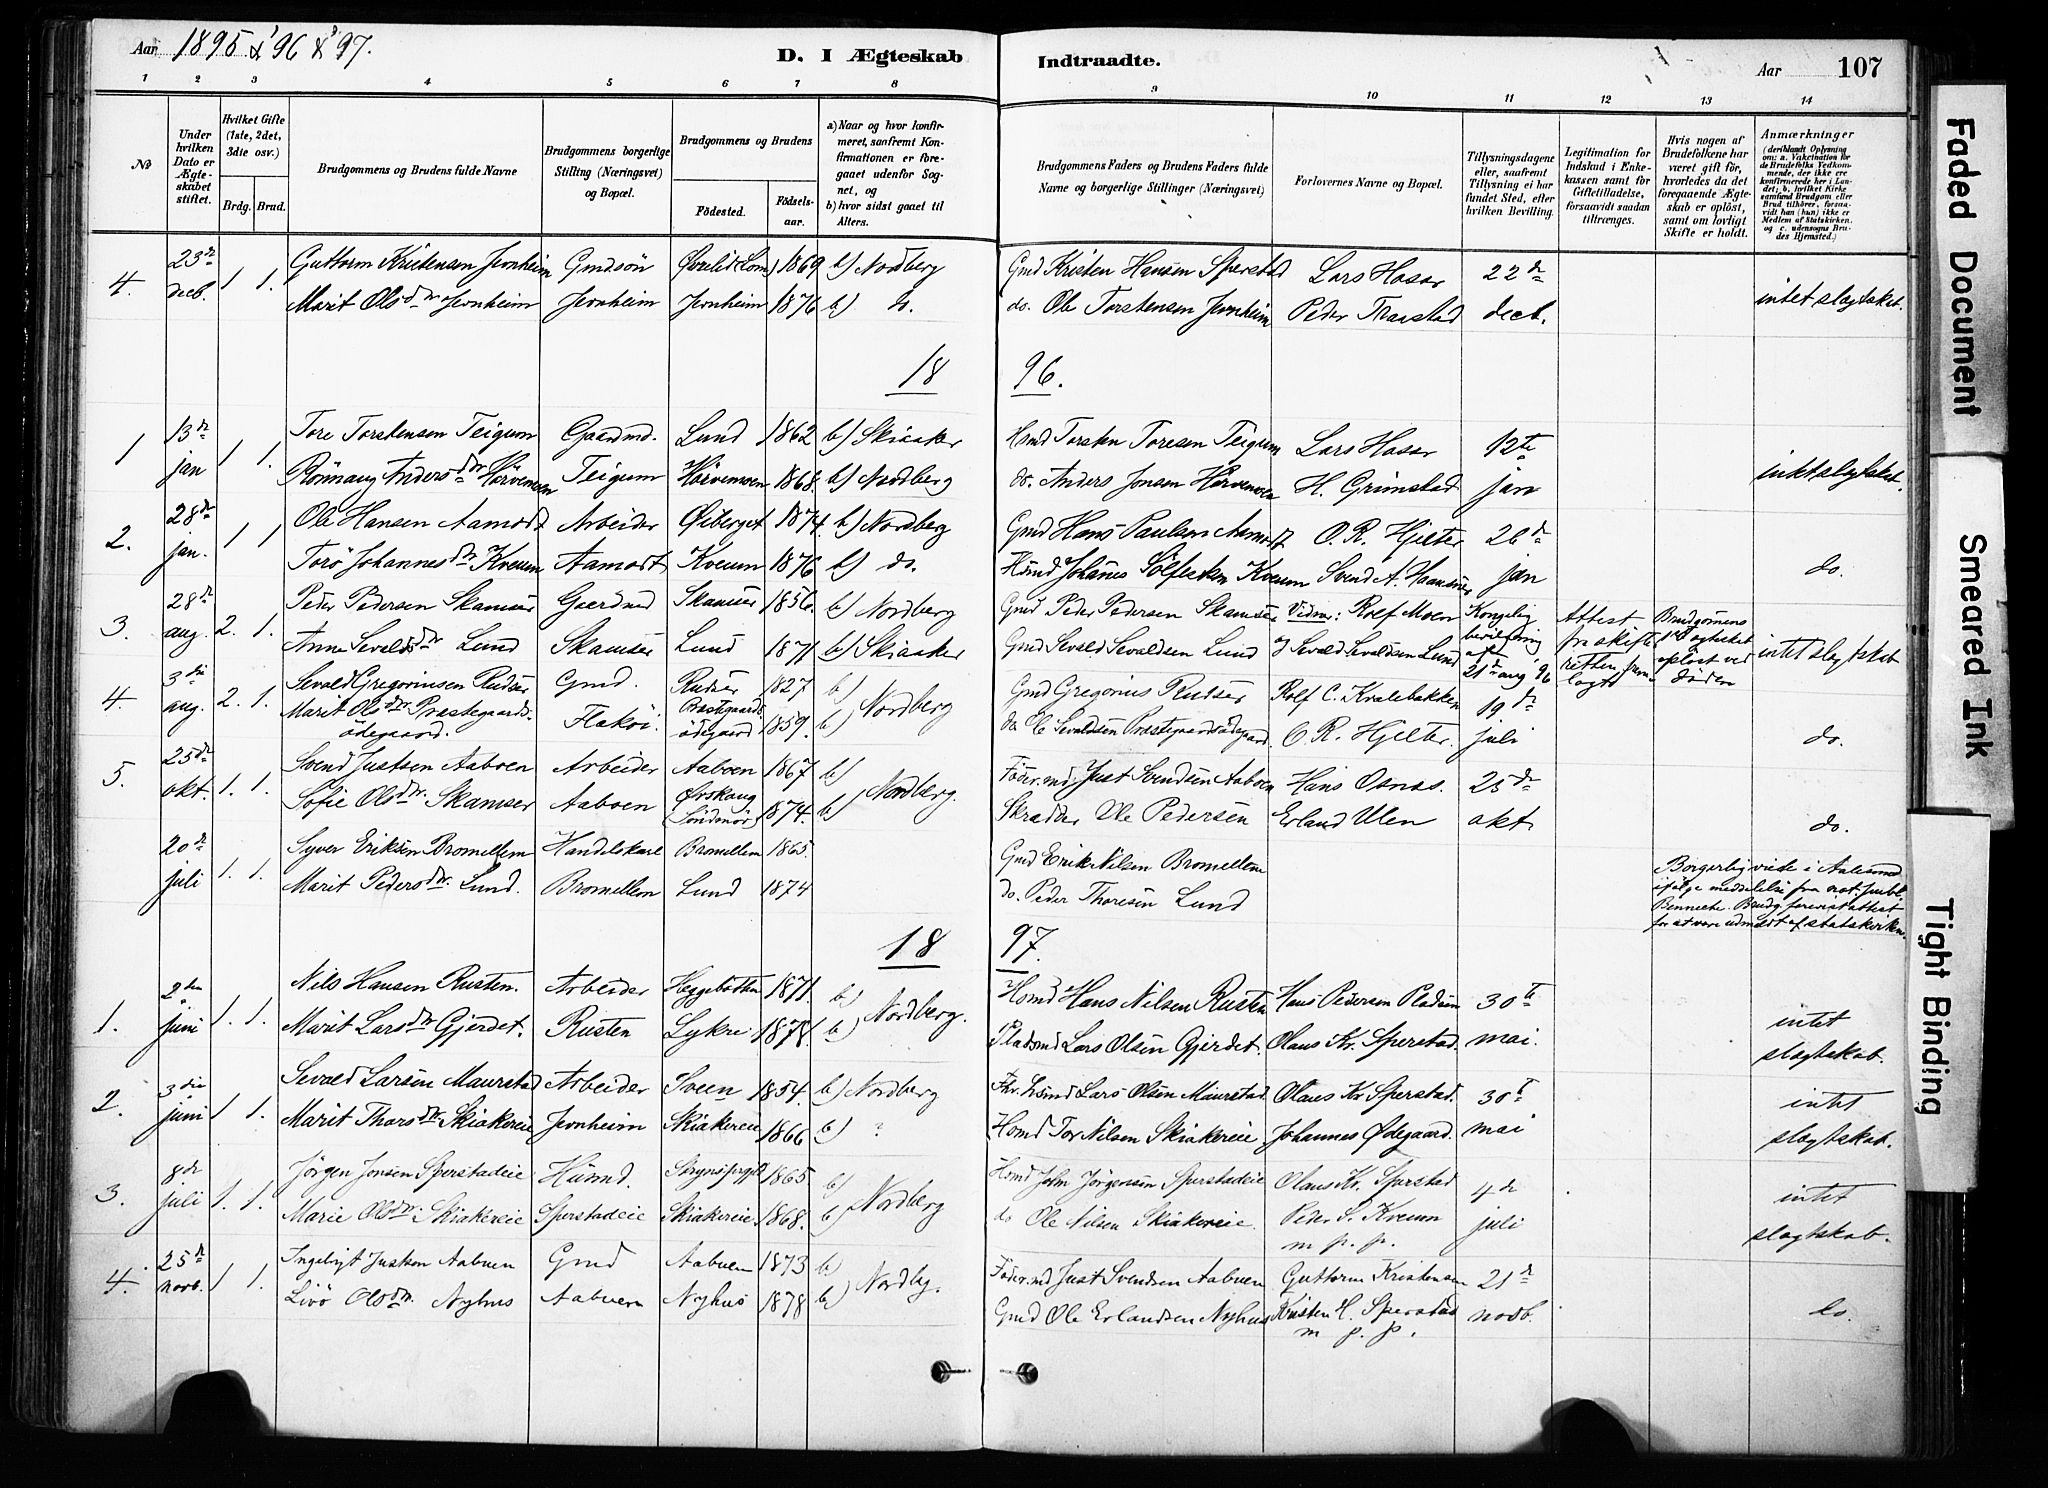 Aar 1895 & '96 & '97.
D. I Ægteskab Indtraadte.
Aar 107
1 2 3 4 5 6 7 8 9 10 11 12 13 14
No
Under hvilken Dato er Ægteskabet stiftet.
Hvilket Gifte (1ste, 2det, 3die osv.)
Brdg. Brud.
Brudgommens og Brudens fulde Navne
Brudgommens borgerlige Stilling (Næringsvei) og Bopæl.
Brudgommens og Brudens
Födested. Födselsaar.
a) Naar og hvor konfirmeret, saafremt Konfirmationen er foregaaet udenfor Sognet, og b) hvor sidst gaaet til Alters.
Brudgommens Faders og Brudens Faders fulde Navne og borgerlige Stillinger (Næringsvei)
Forlovernes Navne og Bopæl.
Tillysningsdagene eller, saafremt Tillysning ei har fundet Sted, efter hvilken Bevilling.
Legitimation for Indskud i Enkekassen samt for Giftetilladelse, forsaavidt saadan tiltrænges.
Hvis nogen af Brudefolkene har været gift för, hvorledes da det foregaaende Ægteskab er oplöst, samt om lovligt Skifte er holdt.
Anmærkninger (deriblandt Oplysning om: a. Vakcination for de Brudefolks Vedkommende, der ikke ere konfirmerede her i Landet; b. hvilket Kirkesamfund Brudgom eller Brud tilhörer, forsaavidt han (hun) ikke er Medlem af Statskirken. og c. udensogns Brudes Hjemsted.)
4. 23de decb. 1 1. Guttorm Kristensen Jernheim Gmdsön Øvrelid (Lom) 1869 b) Nordberg Gmd Kristen Hansen Sperstad Lars Hosar 22de
Marit Olsdtr Jernheim Jernheim Jernheim 1876 b) do. do. Ole Torstensen Jernheim Peder Thorstad decb. intet slægtskab.
18 96.
1 13de jan 1 1. Tore Torstensen Teigum Gaardmd. Lund 1862 b) Skiaaker Hsmd Torsten Toresen Teigum Lars Hosar 12te
Rönnaug Andersdtr Hörvemoen Teigum Hörvemoen 1868. b) Nordberg do. Anders Jonsen Hörvemoen H. Grimstad jan intet slægtskab.
2. 28de jan. 1 1 Ole Hansen Aamodt Arbeider Øiberget 1874. b) Nordberg Gmd Hans Paulsen Aamodt O. R. Hjelter 26de
Torö Johannesdtr Kveum Aamodt Kveum 1876 b) do. Hsmd Johanes Kveum Svend A. jan do.
3. 28de aug. 2. 1. Peder Pedersen Skamsar Gaardmd Skamsar 1856. b) Nordberg Gmd Peder Pedersen Skamsar Vidner: Rolf Moen Kongelig bevilgning af
Anne Sevaldsdtr Lund Skamsar Lund 1871 b) Skiaaker Gmd Sevald Sevaldsen Lund og Sevald Sevaldsen Lund 21de aug '96 Attest fra skifteretten fremlagt Brudgomens 1ste ægteskab oplöst ved döden intet slægtskab
4. 3die aug. 2. 1. Sevald Gregoriusen Rudsar Gmd. Rudsar 1827 b) Nordberg Gmd Gregorius Rudsar Rolf C. Kvalebakken 19de
Marit Olsdtr Præstegaards- ödegaard. Fleköi. Præstgaards- ödegaard 1859. b) do Ole Sevaldsen Præstegaardsödegaard. O. R. Hjelter. juli do.
5. 25de okt. 1. 1. Svend Justsen Aaboen Arbeider Aaboen 1867 b) Föder.md. Just Svendsen Aaboen Hans Osnas. 25de
Sofie Olsdtr. Skamsar Aaboen Ørskoug (Söndmör) 1874. b) Nordberg. Skræder Ole Pedersen Erland Ulen okt. do.
20de juli 1. 1. Syver Eriksen Bromellem Handelskarl Bromellem 1865. Gmd Erik Nilsen Bromellem
Marit Pedersdtr. Lund. Bromellem Lund 1874 do. Peder Thoresen Lund Borgerlig viede i Aalesund ifölge meddelelse fra not. publ. Benneche. Brudg. forevist attest for at være udmeldt af statskirken.
18 97.
1. 2den juni 1. 1. Nils Hansen Rusten. Arbeider Heggebotten 1871. b) Nordberg. Hsmd Hans Nilsen Rusten Hans Pedersen Pladsen 30te intet
Marit Larsdtr Gjerdet. Rusten Lykre 1878. b) Pladsmd Lars Olsen Gjerdet. Olaus Kr. Sperstad. mai. slægtskab.
2. 3die juni 1 1. Sevald Larsen Maurstad Arbeider Sveen 1854. b) Nordberg Fhv. Hsmd Lars Olsen Maurstad. Olaus Kr Sperstad. 30te intet
Marit Thorsdtr Skiakereie Jernheim Skiakereie 1866 b) ? Hsmd Tor Nilsen Skiakereie. Johannes Ødegaard. mai slægtskab.
3. 8de juli 1. 1. Jörgen Jonsen Sperstadeie Husmd. 1865 b) Nordberg Hsmd John Jörgensen Sperstadeie Olaus Kr. Sperstad 4de intet
Marie Olsdtr. Skiakereie Sperstadeie Skiakereie. 1868. b) do Ole Nilsen Skiakereie. Peder S. Kveum juli slægtskab.
m. p. p.
4. 25de novb. 1 1. Ingebrigt Justsen Aabuen Gmd Aabuen 1873 b) Nordbg. Föder.md Just Svendsen Aabuen Guttorm Kristensen 21de
Livö Olsdtr. Nyhus Aabuen Nyhus 1878 b) Gmd Ole Erlandsen Nyhus Kristen H. Sperstad novb. do.
m. p. p.
Faded Document
Smeared Ink
Tight Binding